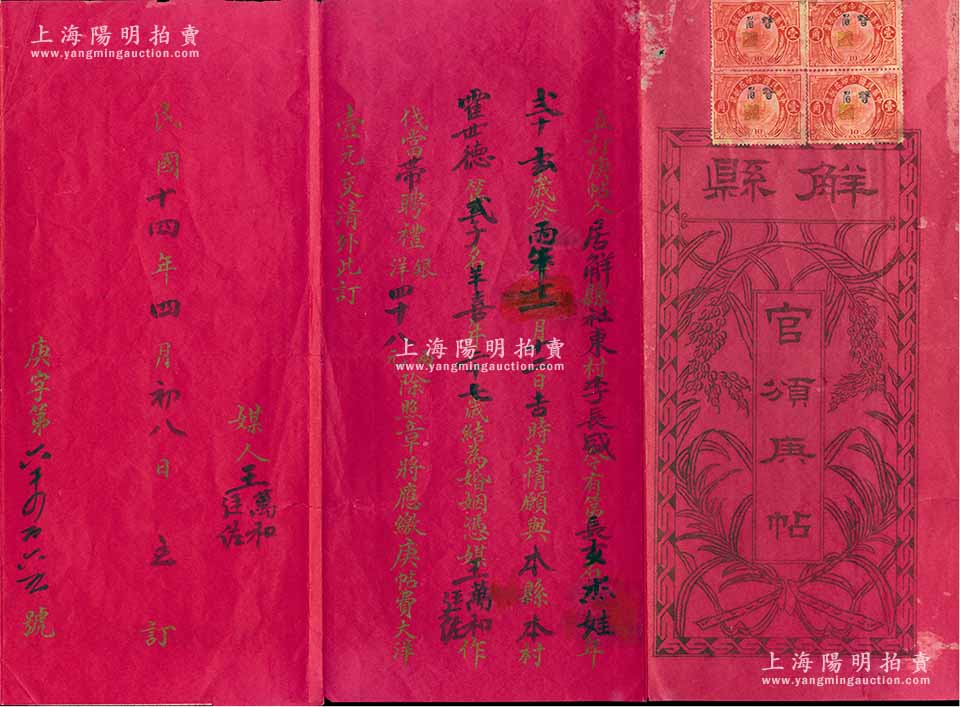 解縣
官頒庚帖
立訂庚帖人居解縣社東村李長盛今有第長女名杰娃年
式十去歲於丙午年十二月十一日吉時生情願與本縣本村
霍世德第式子名羊喜年二十七歲結為婚姻憑媒王萬和作
伐當帶聘禮銀洋四十八元除照章將應繳庚帖費大洋
壹元交清外此訂
媒人王萬和
民國十四年四月初八日 立訂
庚字第 號
上海陽明拍賣
www.yangmingauction.com
上海陽明拍賣
www.yangmingauction.com
上海陽明拍賣
www.yangmingauction.com